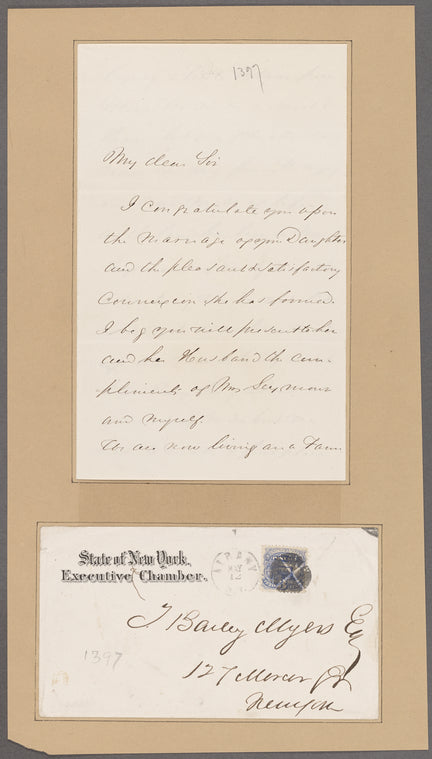 1397
My dear Sir
I congratulate you upon
the marriage of your Daughter
and the pleasant & satisfactory
Connexion she has formed.
I beg you will present to her
and her Husband the com-
pliments of Mrs Seymour
and myself.
We are now living on a Farm
State of New York,
Executive Chamber.
ALBANY
MAY
12
T Bailey Myers Esq
1397
127 Mercer St
New York